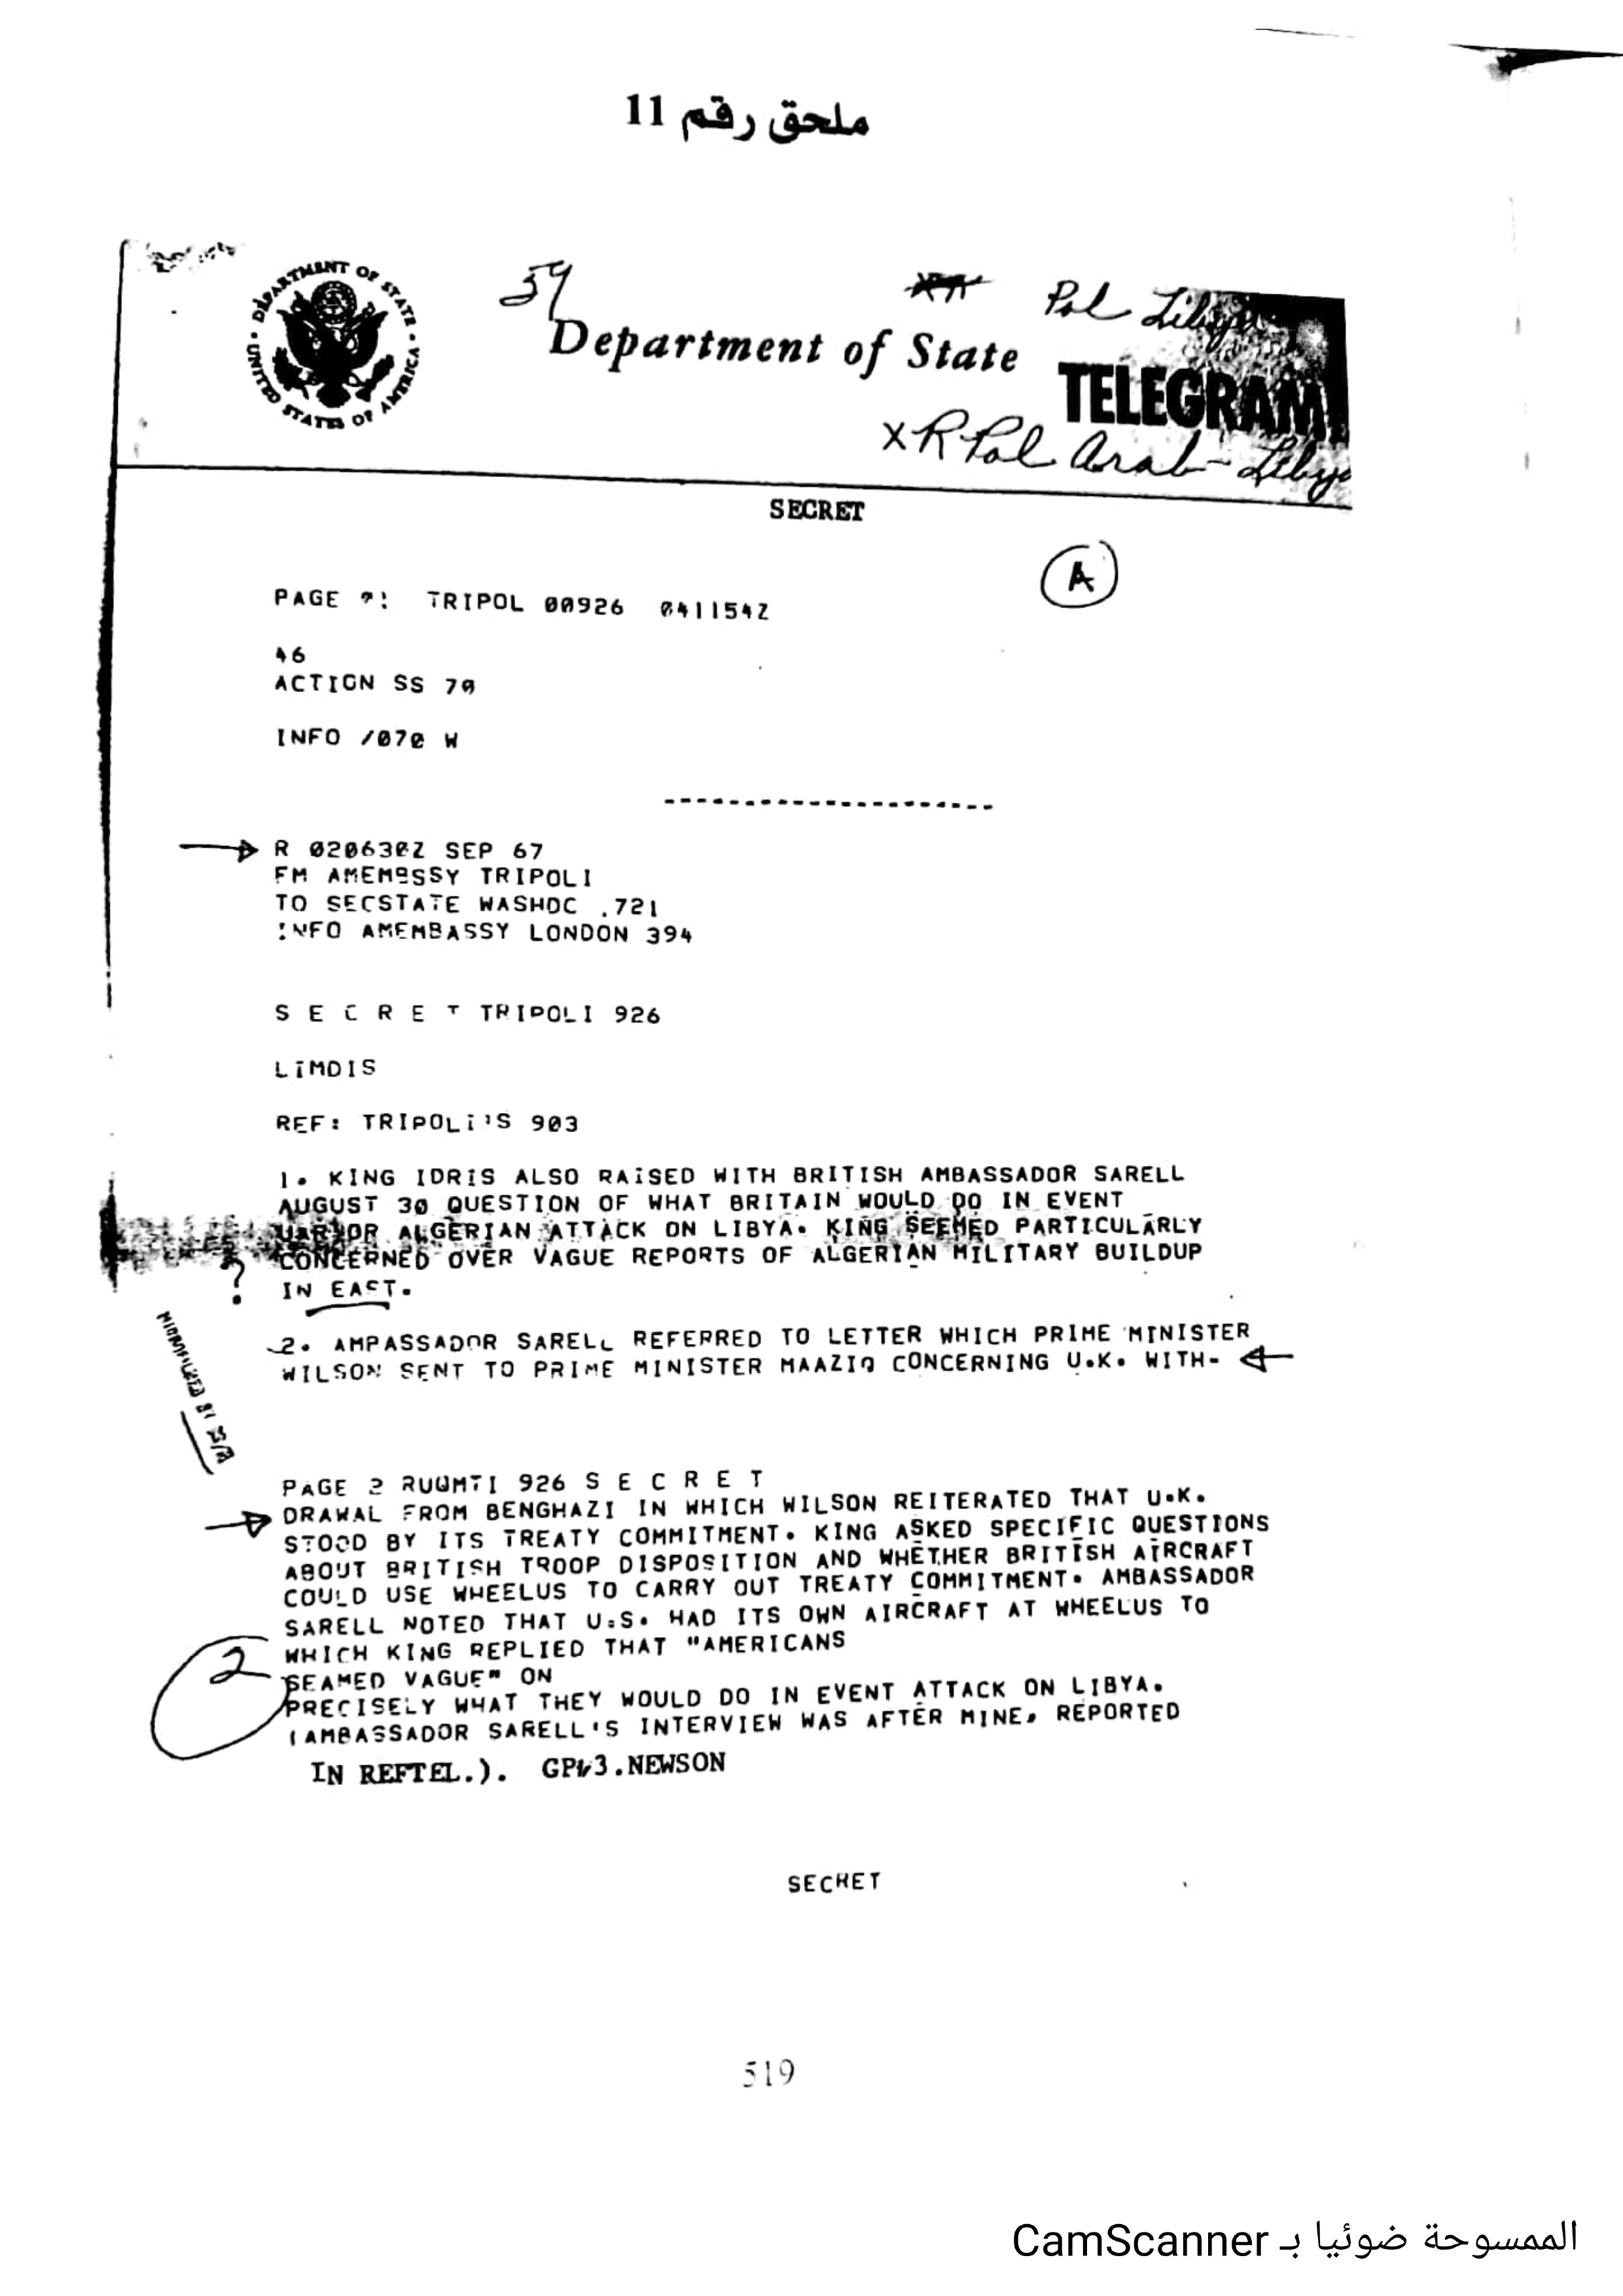 ملحق رقم 11
DEPARTMENT OF STATE
UNITED STATES OF AMERICA
59
Department of State
Pol Libya
TELEGRAM
XR Pol Arab-Libya
SECRET
A
PAGE 01 TRIPOL 00926 041154Z
46
ACTION SS 70
INFO /070 W
R 020630Z SEP 67
FM AMEMBSSY TRIPOLI
TO SECSTATE WASHDC .721
INFO AMEMBASSY LONDON 394
S E C R E T TRIPOLI 926
LIMDIS
REF: TRIPOLI'S 903
1. KING IDRIS ALSO RAISED WITH BRITISH AMBASSADOR SARELL
AUGUST 30 QUESTION OF WHAT BRITAIN WOULD DO IN EVENT
OR ALGERIAN ATTACK ON LIBYA. KING SEEMED PARTICULARLY
CONCERNED OVER VAGUE REPORTS OF ALGERIAN MILITARY BUILDUP
? IN EAST.
2. AMPASSADOR SARELL REFERRED TO LETTER WHICH PRIME MINISTER
WILSON SENT TO PRIME MINISTER MAAZIQ CONCERNING U.K. WITH-
MICROFILMED BY
PAGE 2 RUQMTI 926 S E C R E T
DRAWAL FROM BENGHAZI IN WHICH WILSON REITERATED THAT U.K.
STOOD BY ITS TREATY COMMITMENT. KING ASKED SPECIFIC QUESTIONS
ABOUT BRITISH TROOP DISPOSITION AND WHETHER BRITISH AIRCRAFT
COULD USE WHEELUS TO CARRY OUT TREATY COMMITMENT. AMBASSADOR
SARELL NOTED THAT U.S. HAD ITS OWN AIRCRAFT AT WHEELUS TO
WHICH KING REPLIED THAT "AMERICANS
2
SEAMED VAGUE" ON
PRECISELY WHAT THEY WOULD DO IN EVENT ATTACK ON LIBYA.
(AMBASSADOR SARELL'S INTERVIEW WAS AFTER MINE, REPORTED
IN REFTEL.). GP-3.NEWSON
SECRET
519
الممسوحة ضوئيا بـ CamScanner